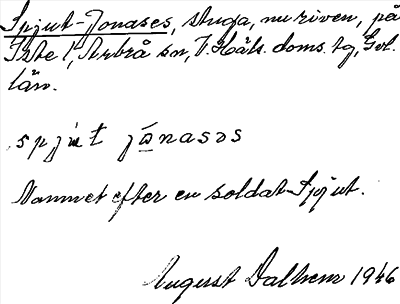 Spjut-Jonases, stuga, nu riven, på
Iste 1, Arbrå sn, V. Häls. doms. tg, Gvl.
län.
spjut jånasəs
Namnet efter en soldat Spjut.
August Dalhem 1946